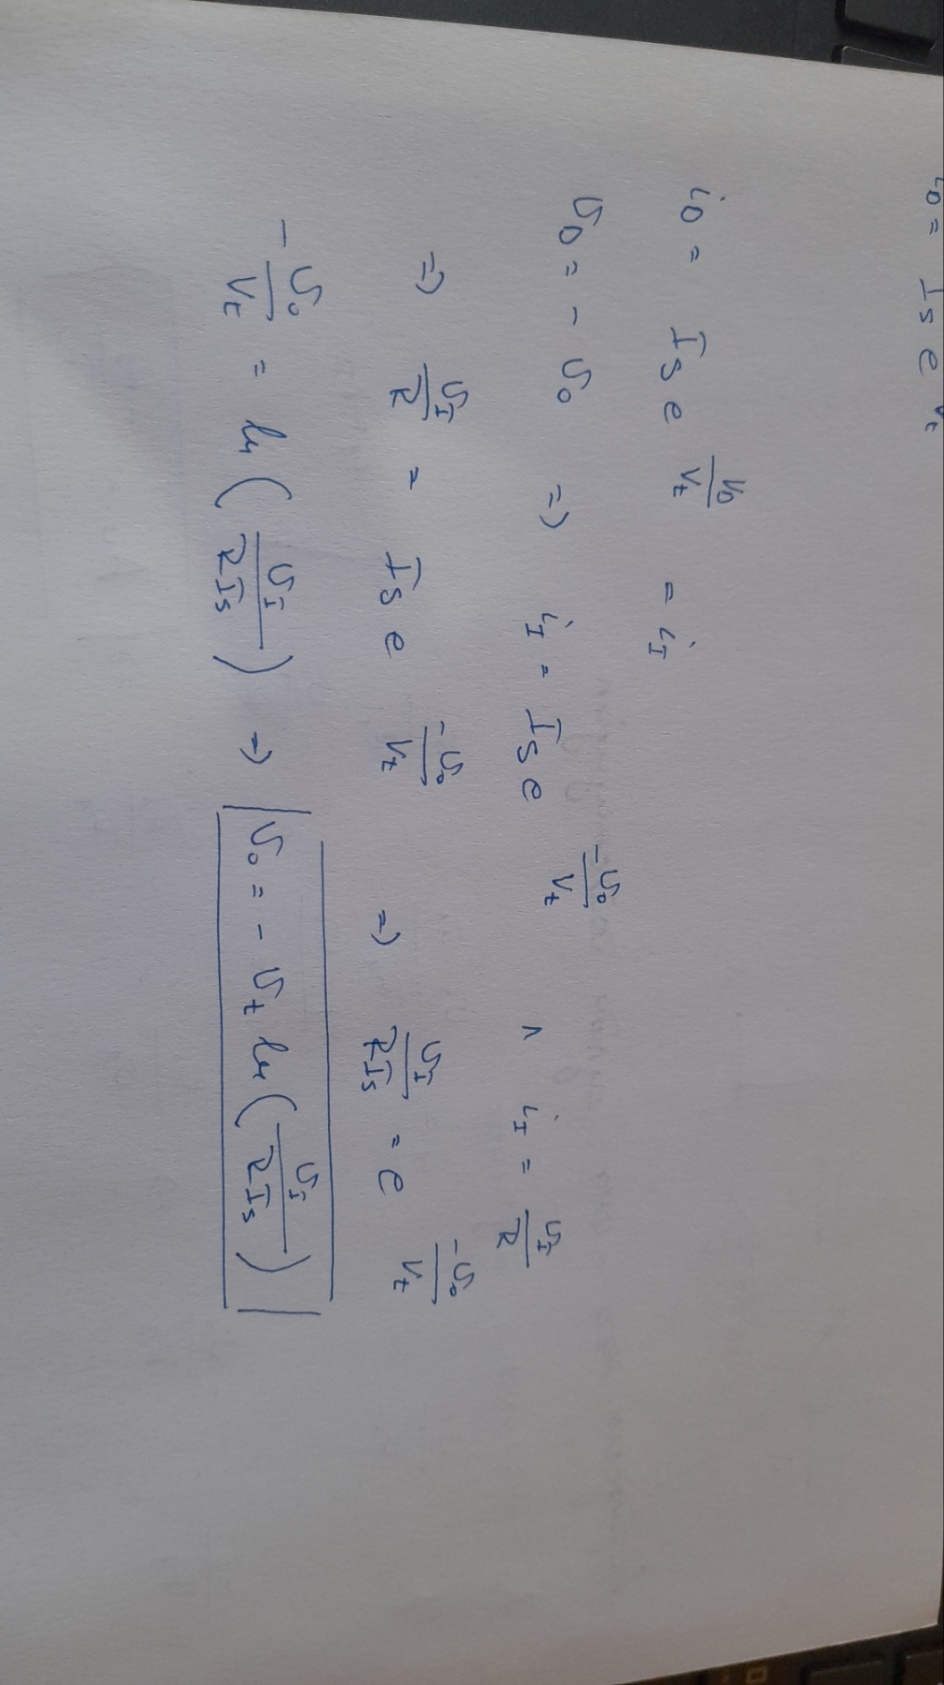 iD = Is e Vt
iD = Is e^(VD/Vt) = iI
υD = - υo => iI = Is e^(-υo/Vt) ∧ iI = υI/R
=> υI/R = Is e^(-υo/Vt) => υI/RIs = e^(-υo/Vt)
- υo/Vt = ln(υI/RIs) => υo = - Vt ln(υI/RIs)